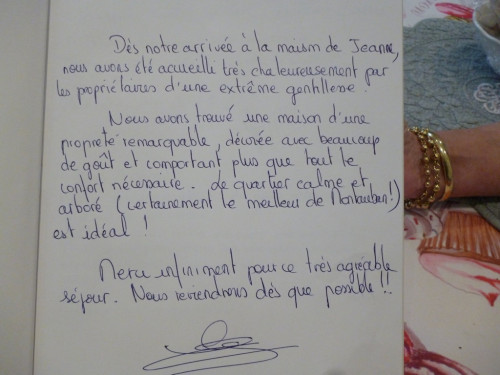 Dès notre arrivée à la maison de Jeanne,
nous avons été accueillie très chaleureusement par
les propriétaires d'une extrême gentillesse.
Nous avons trouvé une maison d'une
propreté remarquable, décorée avec beaucoup
de goût et comportant plus que tout le
confort nécessaire. Le quartier calme et
arboré (certainement le meilleur de Montauban!)
est idéal !
Merci infiniment pour ce très agréable
séjour. Nous reviendrons dès que possible !!